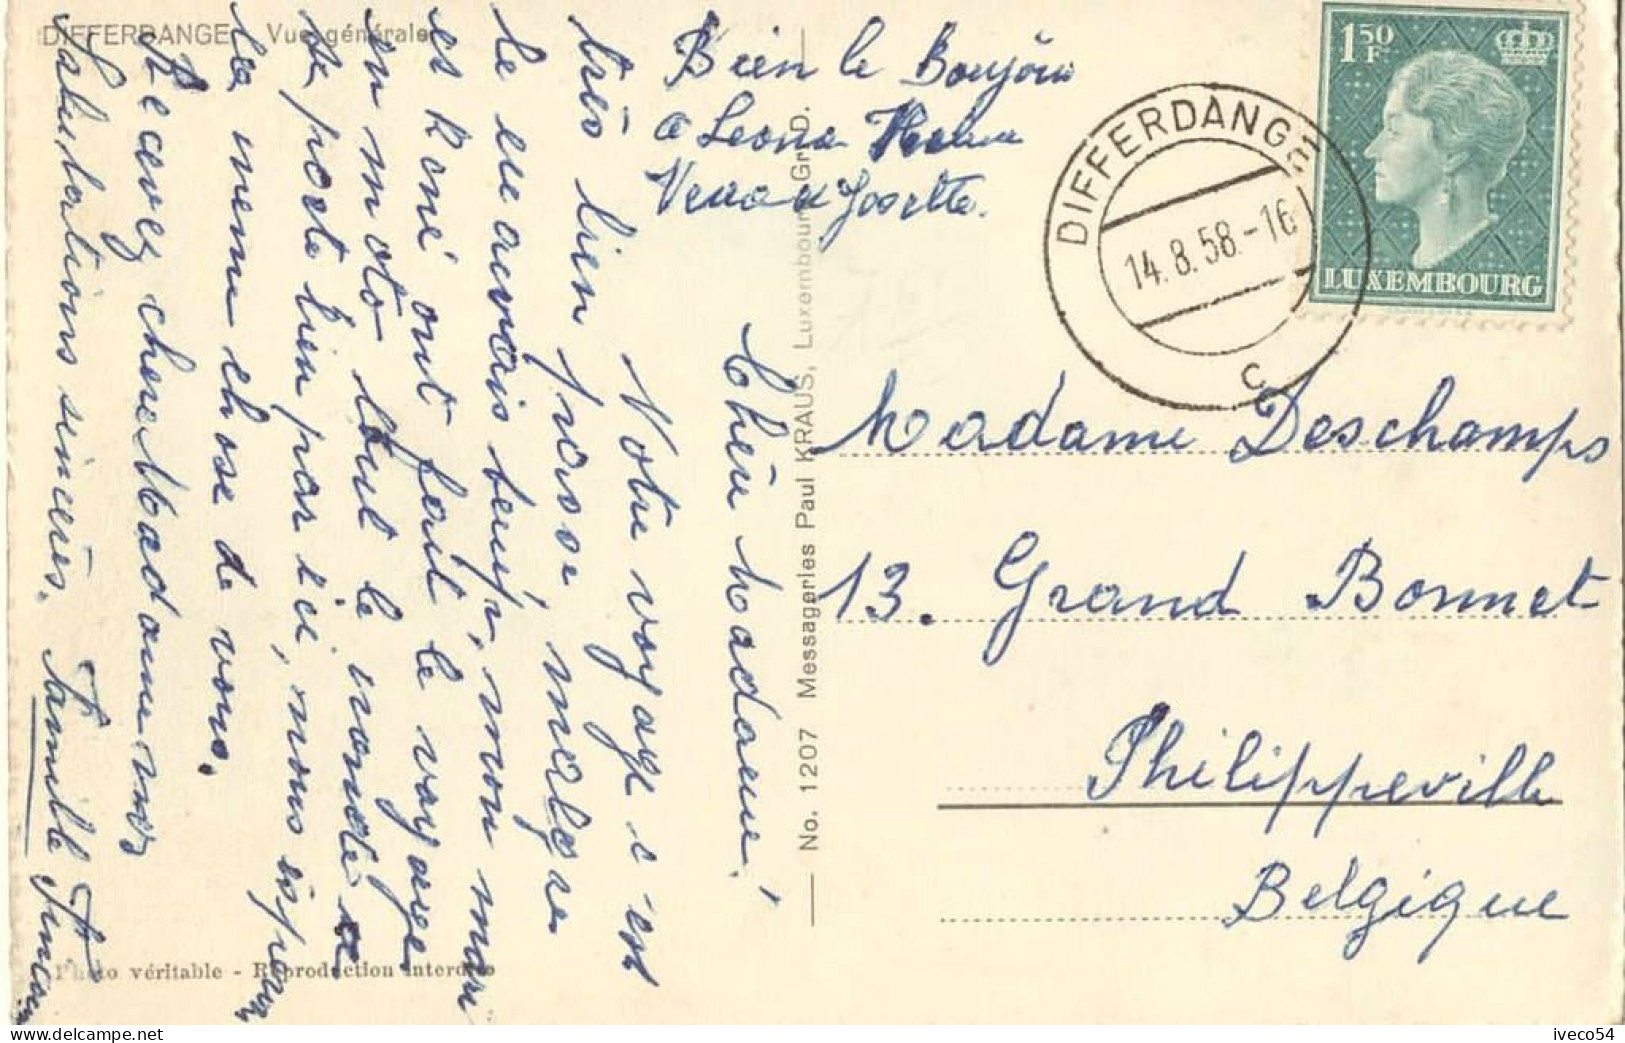 DIFFERDANGE - Vue générale
Bien le Boujour
a Leona
Josette.
1,50 F
LUXEMBOURG
DIFFERDANGE
14.8.58.-16
C
Chèu Madame!
Votre voyage c'est
très bien passe, malgre
le mauvais temps, mon mari
et Roné ont fait le voyage
en moto, tout le monde se
se porte bien par ici, nous espèron
la meme chose de vous.
Recevez chere Madame nos
Salutations sincères.
Famille
No. 1207 Messageries Paul KRAUS, Luxembourg Gr. D.
Madame Deschamps
13. Grand Bonnet
Philippeville
Belgique
Photo véritable - Reproduction interdite
delcampe.net
iveco54